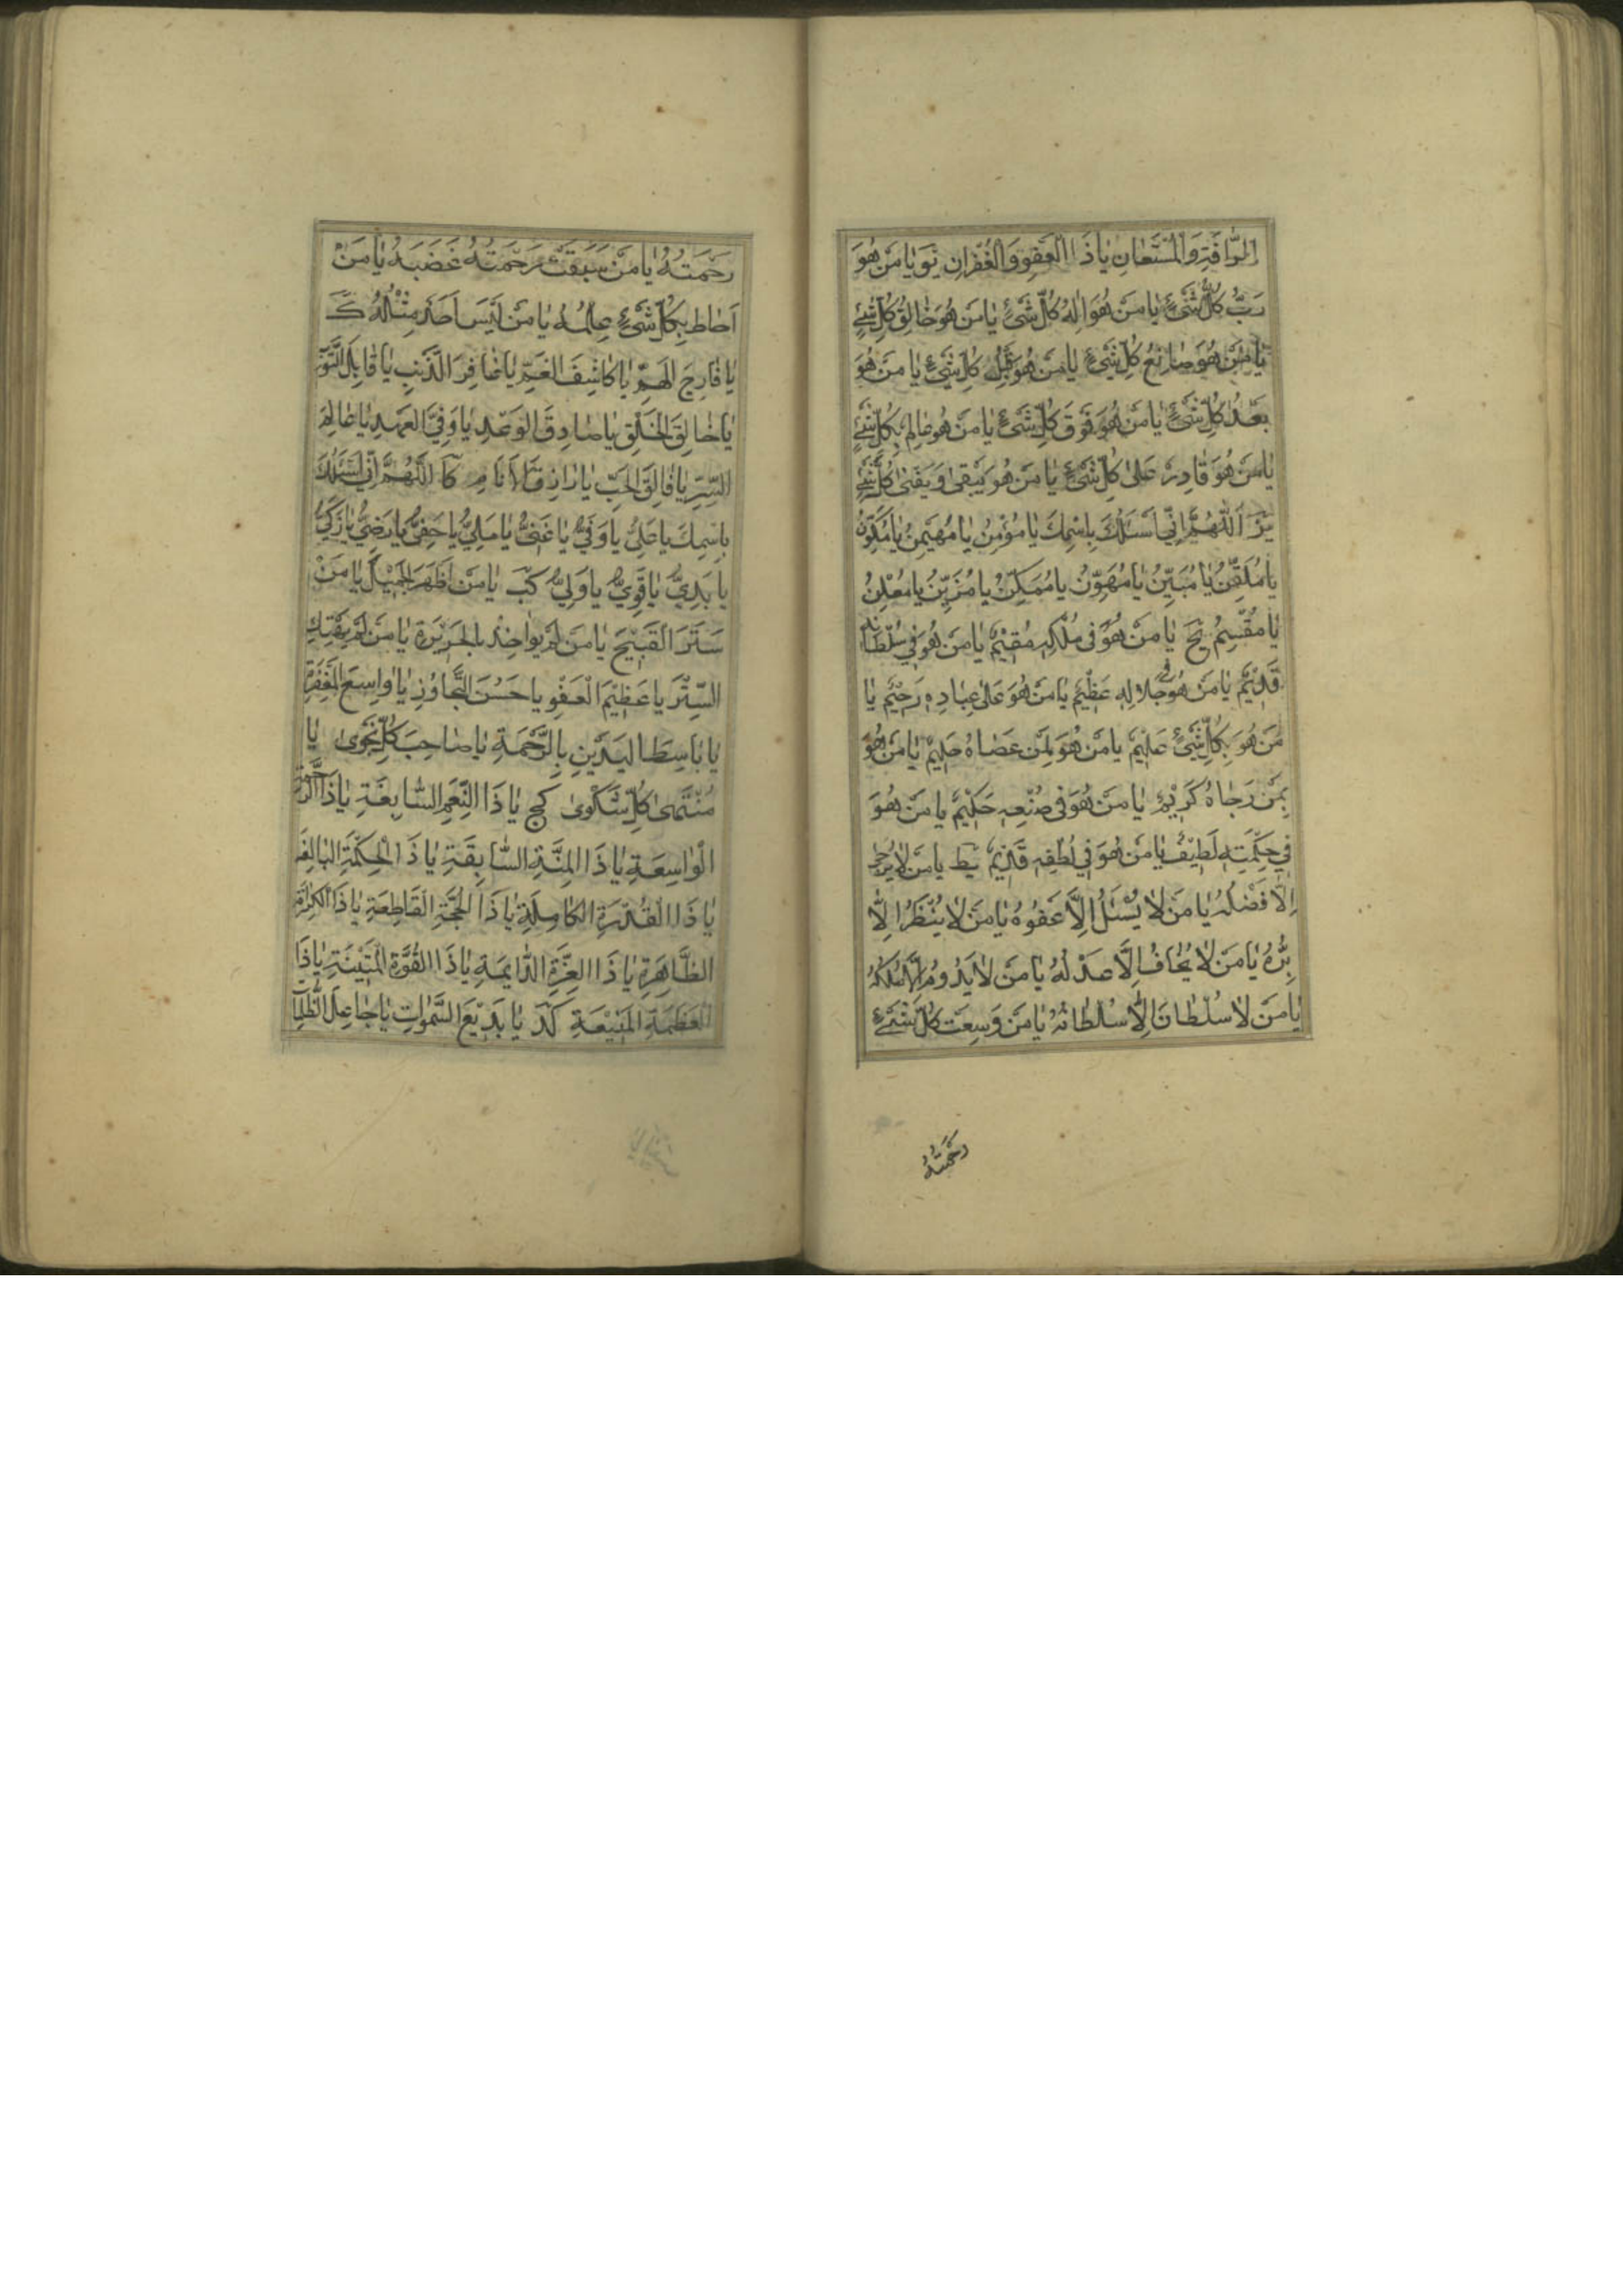 الرَّافَةِ وَالْمُسْتَعَانِ يَا ذَا الْعَفْوِ وَالْغُفْرَانِ يَو يَا مَنْ هُوَ
رَبُّ كُلِّ شَيْءٍ يَا مَنْ هُوَ اِلٰهُ كُلِّ شَيْءٍ يَا مَنْ هُوَ خَالِقُ كُلِّ شَيْءٍ
يَا مَنْ هُوَ صَانِعُ كُلِّ شَيْءٍ يَا مَنْ هُوَ قَبْلَ كُلِّ شَيْءٍ يَا مَنْ هُوَ
بَعْدَ كُلِّ شَيْءٍ يَا مَنْ هُوَ فَوْقَ كُلِّ شَيْءٍ يَا مَنْ هُوَ عَالِمٌ بِكُلِّ شَيْءٍ
يَا مَنْ هُوَ قَادِرٌ عَلىٰ كُلِّ شَيْءٍ يَا مَنْ هُوَ يَبْقىٰ وَيَفْنىٰ كُلُّ شَيْءٍ
يز اَللّٰهُمَّ اِنِّي اَسْئَلُكَ بِاسْمِكَ يَا مُؤْمِنُ يَا مُهَيْمِنُ يَا مُكَوِّنُ
يَا مُلَقِّنُ يَا مُبَيِّنُ يَا مُهَوِّنُ يَا مُمَكِّنُ يَا مُزَيِّنُ يَا مُعْلِنُ
يَا مُقَسِّمُ يح يَا مَنْ هُوَ فِي مُلْكِهِ مُقِيْمٌ يَا مَنْ هُوَ فِي سُلْطَانِهِ
قَدِيْمٌ يَا مَنْ هُوَ فِي جَلَالِهِ عَظِيْمٌ يَا مَنْ هُوَ عَلىٰ عِبَادِهِ رَحِيْمٌ يَا
مَنْ هُوَ بِكُلِّ شَيْءٍ عَلِيْمٌ يَا مَنْ هُوَ لِمَنْ عَصَاهُ حَلِيْمٌ يَا مَنْ هُوَ
بِمَنْ رَجَاهُ كَرِيْمٌ يَا مَنْ هُوَ فِي صُنْعِهِ حَكِيْمٌ يَا مَنْ هُوَ
فِي حِكْمَتِهِ لَطِيْفٌ يَا مَنْ هُوَ فِي لُطْفِهِ قَدِيْمٌ يط يَا مَنْ لَا يُرْجىٰ
اِلَّا فَضْلُهُ يَا مَنْ لَا يُسْئَلُ اِلَّا عَفْوُهُ يَا مَنْ لَا يُنْظَرُ اِلَّا
بِرُّهُ يَا مَنْ لَا يُخَافُ اِلَّا عَدْلُهُ يَا مَنْ لَا يَدُومُ اِلَّا مُلْكُهُ
يَا مَنْ لَا سُلْطَانَ اِلَّا سُلْطَانُهُ يَا مَنْ وَسِعَتْ كُلَّ شَيْءٍ
رَحْمَتُهُ
رَحْمَتُهُ يَا مَنْ سَبَقَتْ رَحْمَتُهُ غَضَبَهُ يَا مَنْ
اَحَاطَ بِكُلِّ شَيْءٍ عِلْمُهُ يَا مَنْ لَيْسَ اَحَدٌ مِثْلُهُ ك
يَا فَارِجَ الْهَمِّ يَا كَاشِفَ الْغَمِّ يَا غَافِرَ الذَّنْبِ يَا قَابِلَ التَّوْبِ
يَا خَالِقَ الْخَلْقِ يَا صَادِقَ الْوَعْدِ يَا وَفِيَّ الْعَهْدِ يَا عَالِمَ
السِّرِّ يَا فَالِقَ الْحَبِّ يَا رَازِقَ الْاَنَامِ كا اَللّٰهُمَّ اِنِّي اَسْئَلُكَ
بِاسْمِكَ يَا عَلِيُّ يَا وَفِيُّ يَا غَنِيُّ يَا مَلِيُّ يَا حَفِيُّ يَا رَضِيُّ يَا زَكِيُّ
يَا بَدِيُّ يَا قَوِيُّ يَا وَلِيُّ كب يَا مَنْ اَظْهَرَ الْجَمِيْلَ يَا مَنْ
سَتَرَ الْقَبِيْحَ يَا مَنْ لَمْ يُوَاخِذْ بِالْجَرِيْرَةِ يَا مَنْ لَمْ يَهْتِكِ
السِّتْرَ يَا عَظِيْمَ الْعَفْوِ يَا حَسَنَ التَّجَاوُزِ يَا وَاسِعَ الْمَغْفِرَةِ
يَا بَاسِطَ الْيَدَيْنِ بِالرَّحْمَةِ يَا صَاحِبَ كُلِّ نَجْوىٰ يَا
مُنْتَهىٰ كُلِّ شَكْوىٰ كج يَا ذَا النِّعَمِ السَّابِغَةِ يَا ذَا الرَّحْمَةِ
الْوَاسِعَةِ يَا ذَا الْمِنَّةِ السَّابِقَةِ يَا ذَا الْحِكْمَةِ الْبَالِغَةِ
يَا ذَا الْقُدْرَةِ الْكَامِلَةِ يَا ذَا الْحُجَّةِ الْقَاطِعَةِ يَا ذَا الْكَرَامَةِ
الظَّاهِرَةِ يَا ذَا الْعِزَّةِ الدَّائِمَةِ يَا ذَا الْقُوَّةِ الْمَتِيْنَةِ يَا ذَا
الْعَظَمَةِ الْمَنِيْعَةِ كد يَا بَدِيْعَ السَّمٰوَاتِ يَا جَاعِلَ الظُّلُمَا